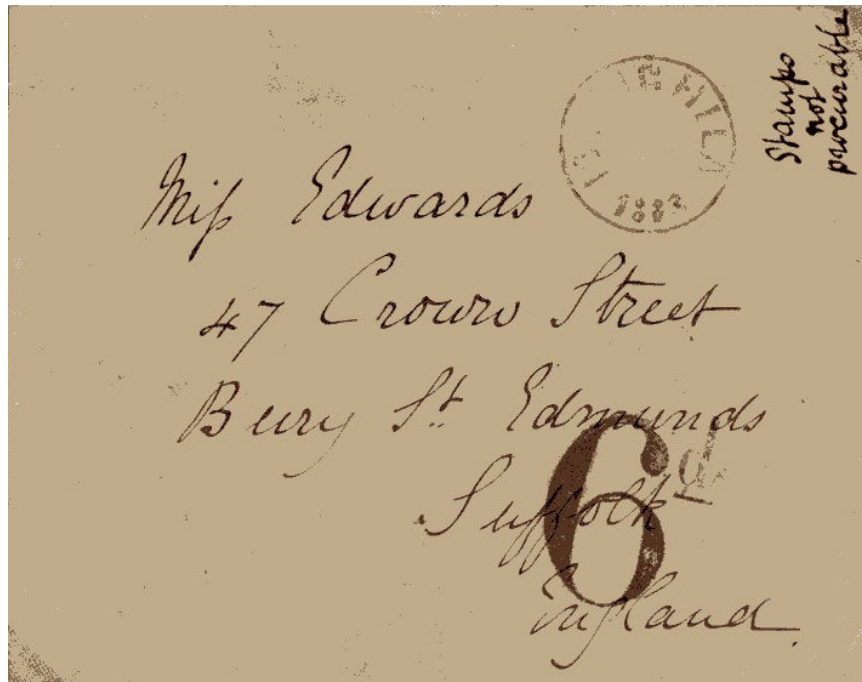 Stamps
not
procurable
1882
Miss Edwards
47 Crown Street
Bury St. Edmunds
Suffolk
England.
6d